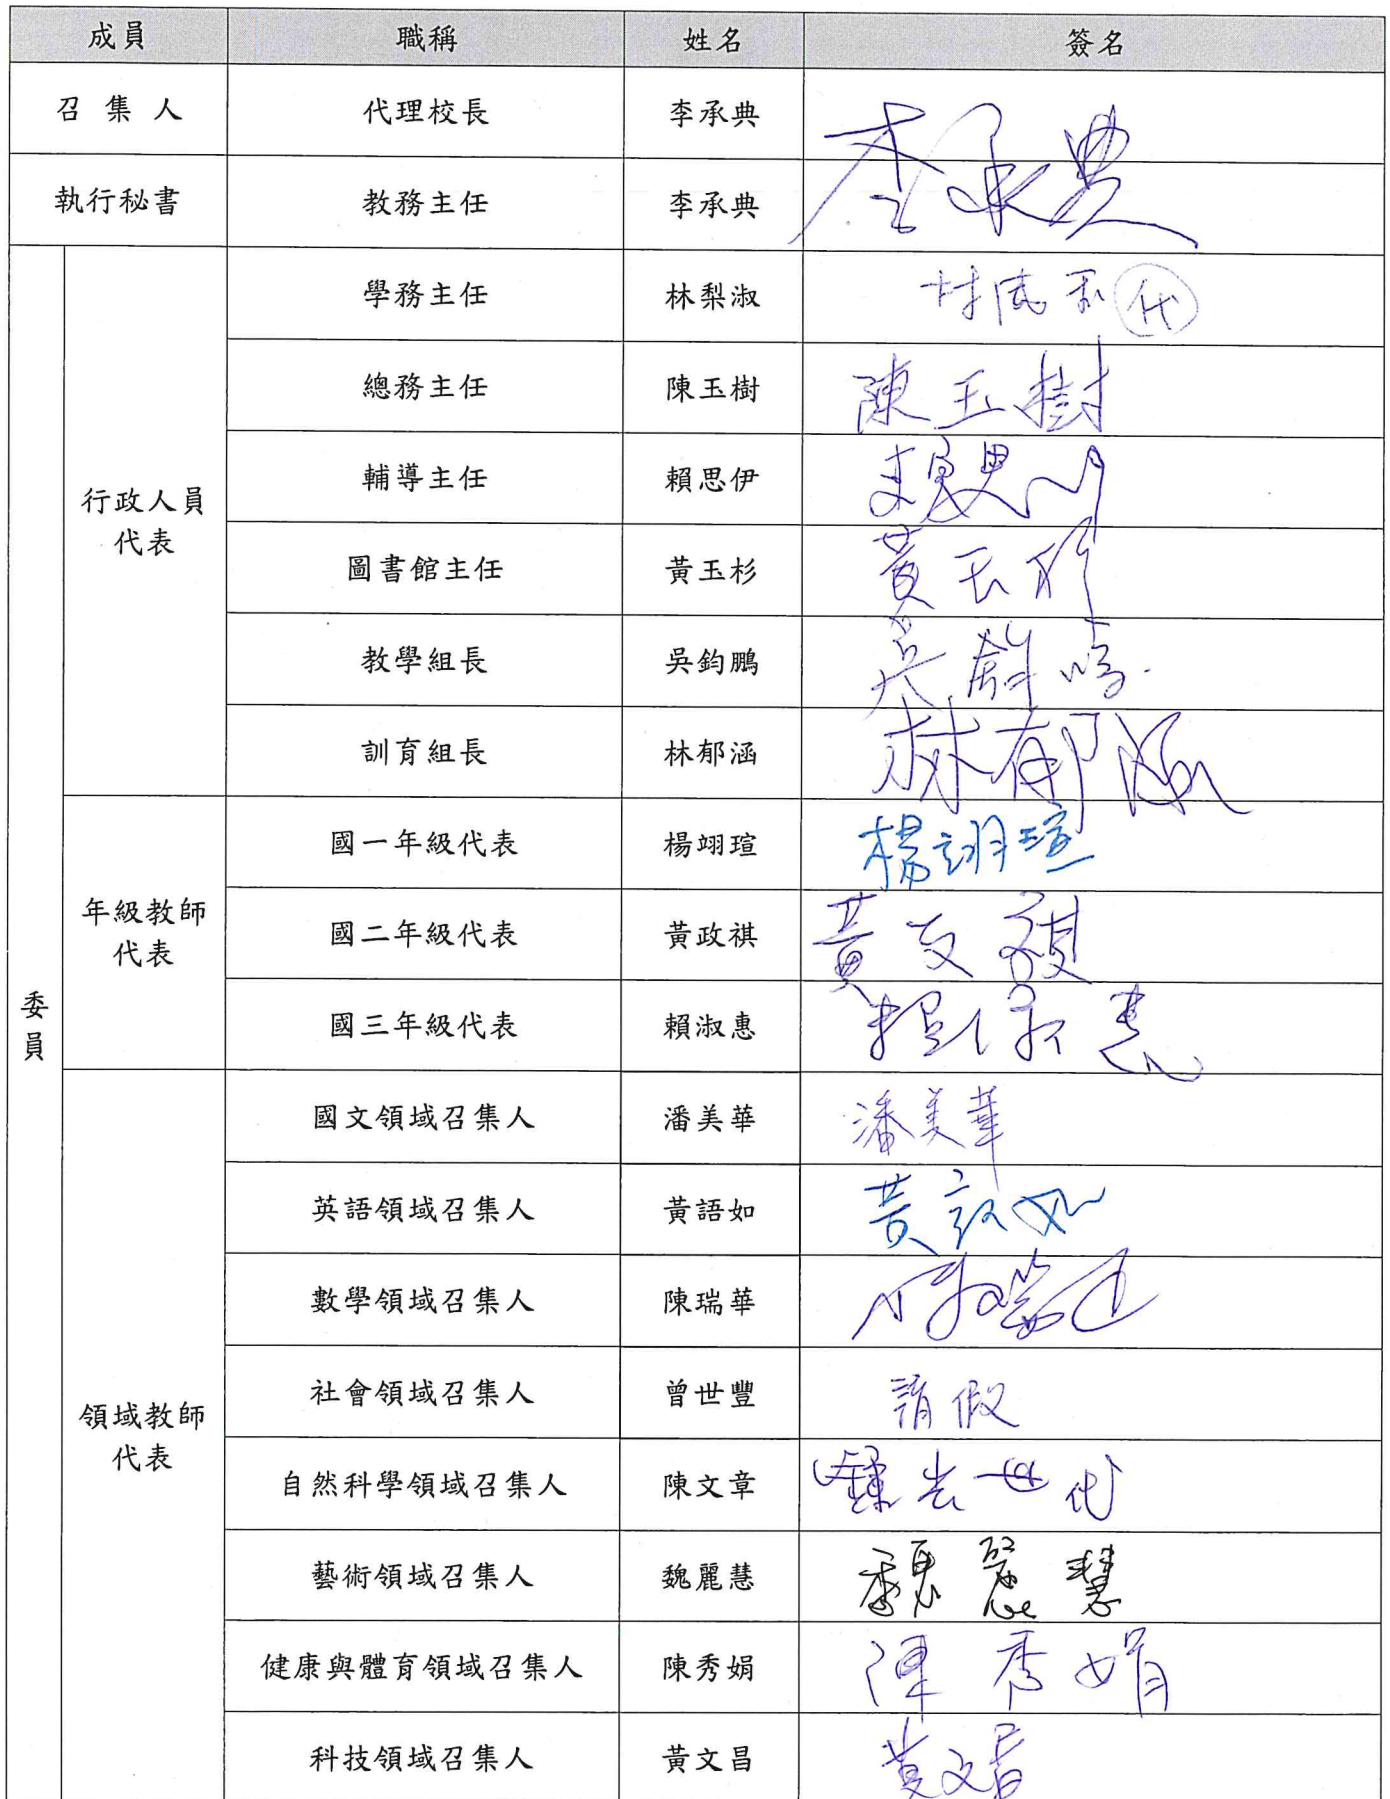 成員 職稱 姓名 簽名
召集人 代理校長 李承典 李承典
執行秘書 教務主任 李承典
委員
行政人員代表
學務主任 林梨淑 代
總務主任 陳玉樹 陳玉樹
輔導主任 賴思伊 賴思伊
圖書館主任 黃玉杉 黃玉杉
教學組長 吳鈞鵬 吳鈞鵬
訓育組長 林郁涵 林郁涵
年級教師代表
國一年級代表 楊翊瑄 楊翊瑄
國二年級代表 黃政祺 黃政祺
國三年級代表 賴淑惠 賴淑惠
領域教師代表
國文領域召集人 潘美華 潘美華
英語領域召集人 黃語如 黃語如
數學領域召集人 陳瑞華 陳瑞華
社會領域召集人 曾世豐 請假
自然科學領域召集人 陳文章 代
藝術領域召集人 魏麗慧 魏麗慧
健康與體育領域召集人 陳秀娟 陳秀娟
科技領域召集人 黃文昌 黃文昌